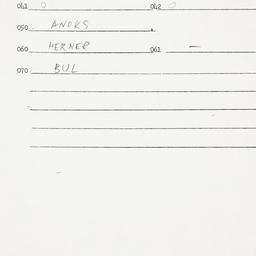 041 0 042 0
050 ANOKS
060 HERNER 061 —
070 BUL